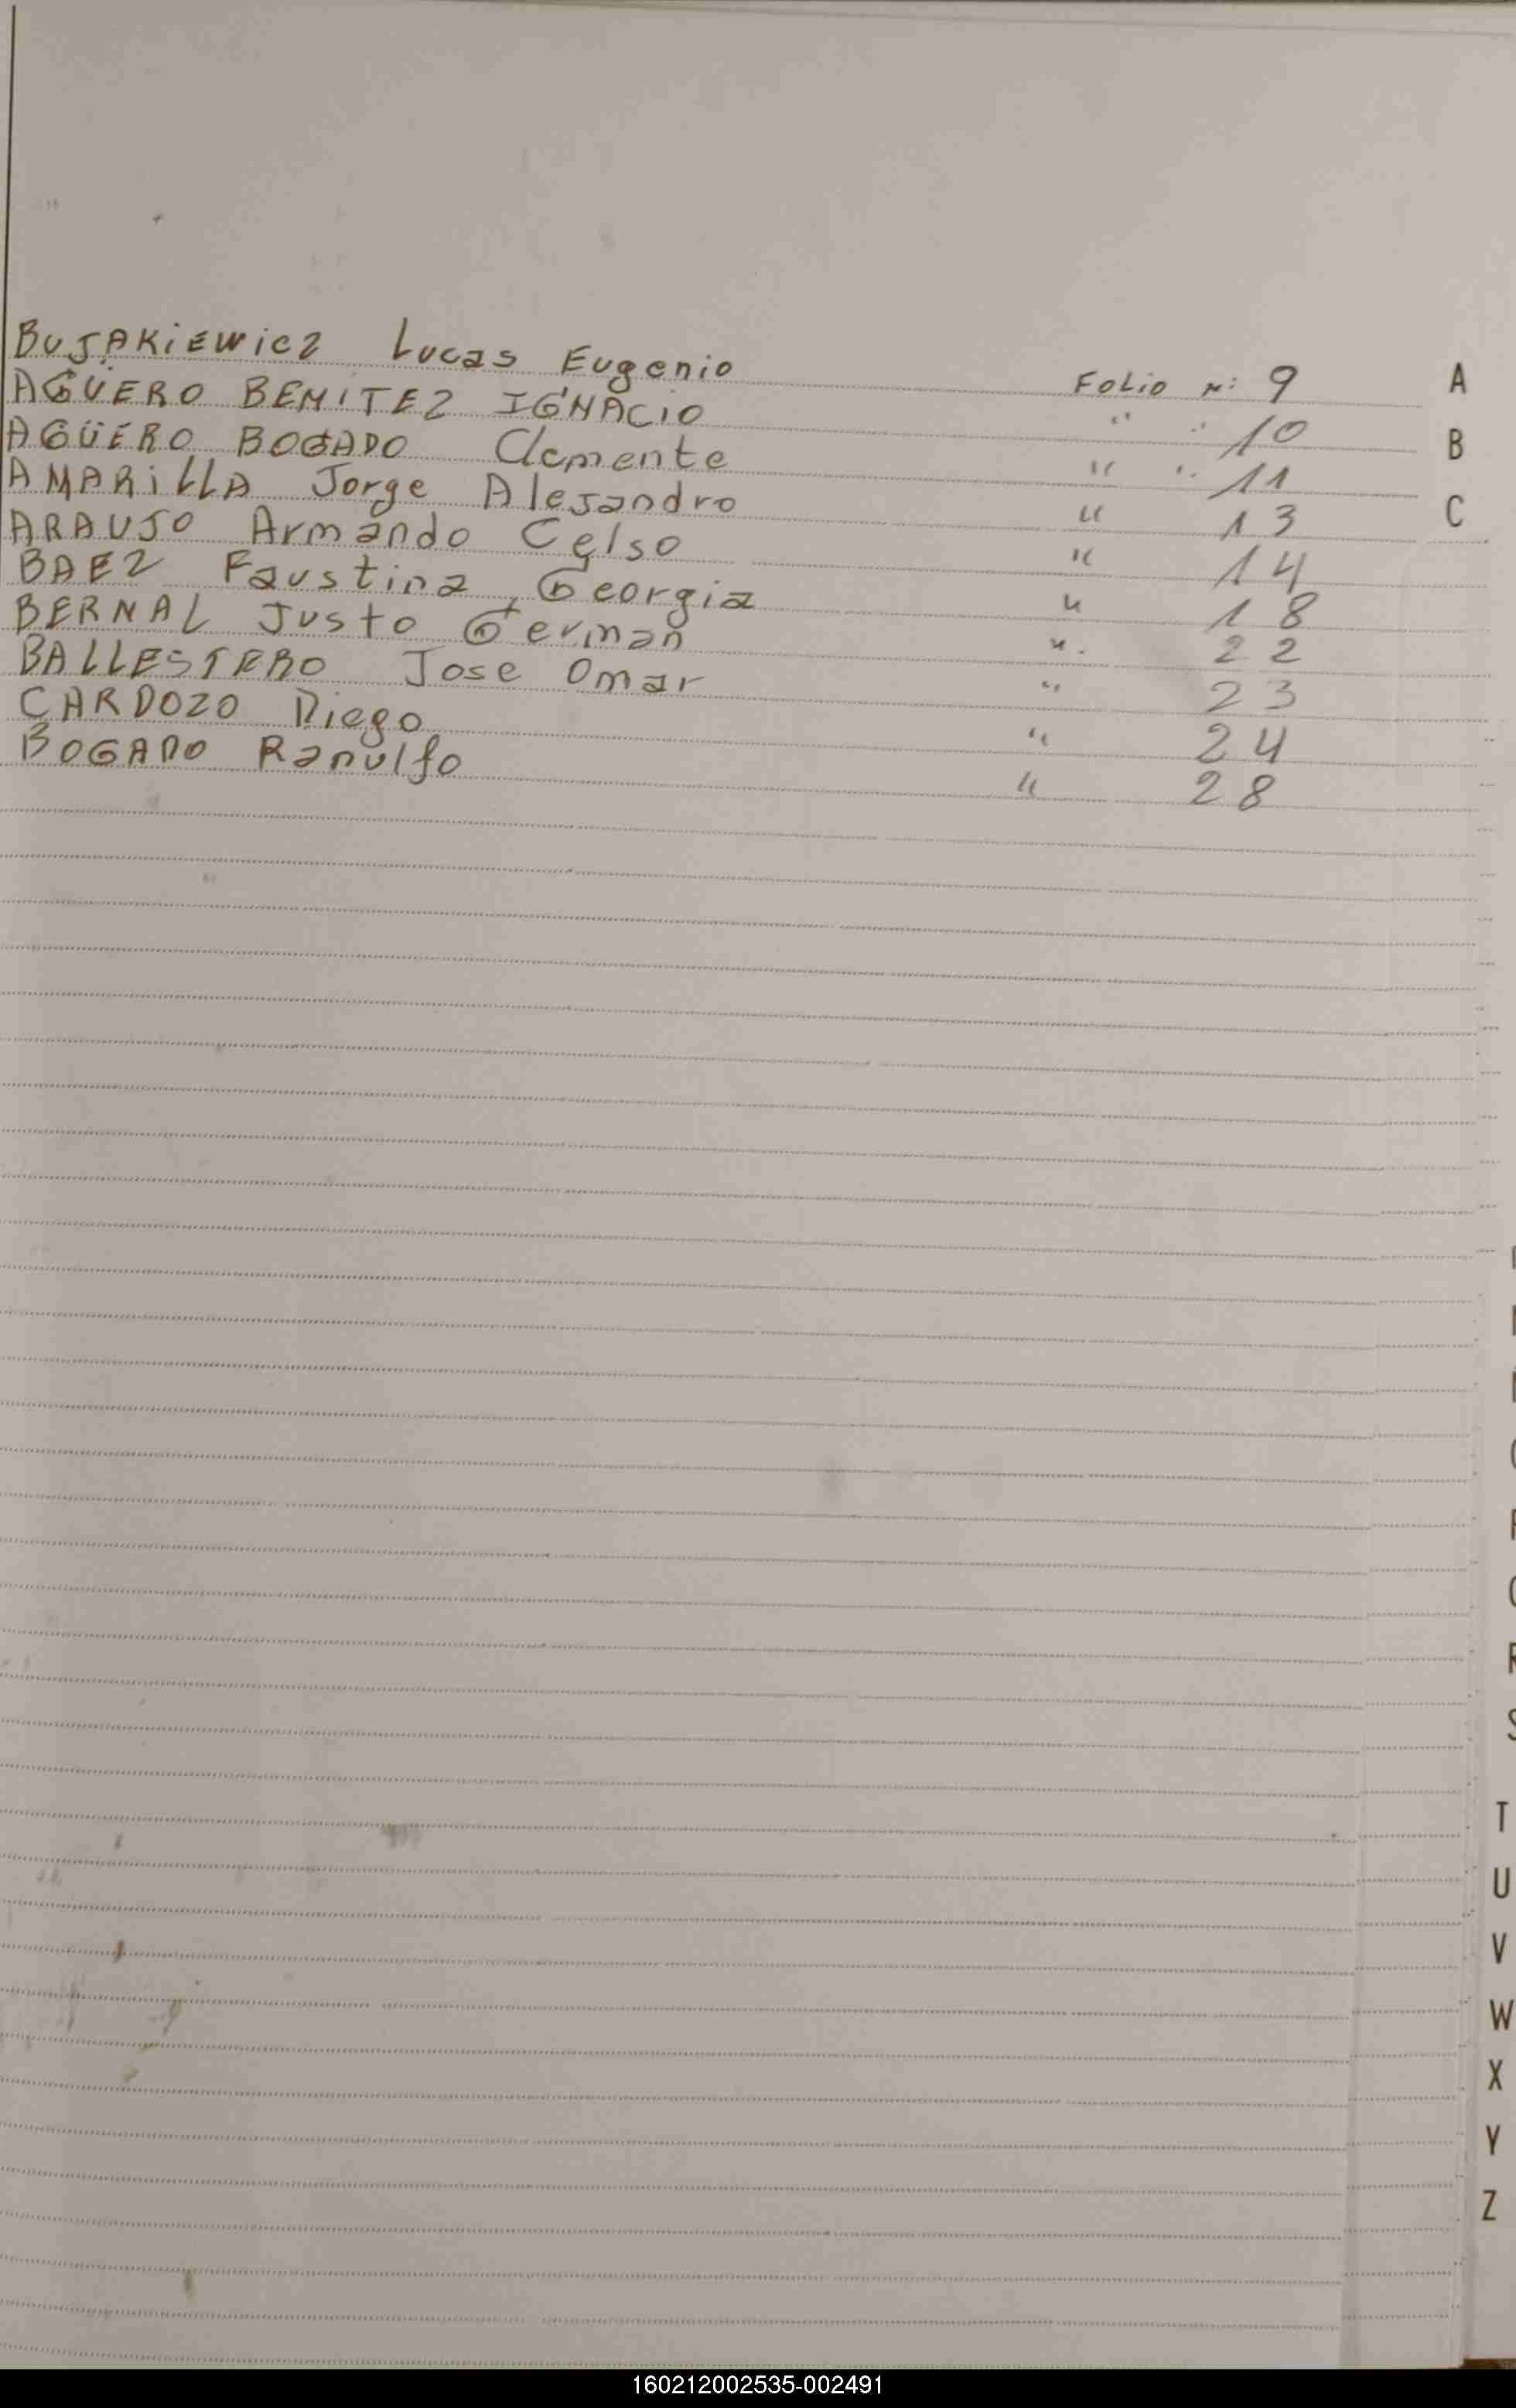 BUJAKiEWicz Lucas Eugenio Folio N: 9 A
AGÜERO BENITEZ IGNACIO " " 10 B
AGÜERO BOGADO Clemente " " 11
AMARiLLA Jorge Alejandro " 13 C
ARAUJO Armando Celso " 14
BAEZ Faustina, Georgia " 18
BERNAL Justo German " 22
BALLESTERO Jose Omar " 23
CARDOZO Diego " 24
BOGADO Ranulfo " 28
R
S
T
U
V
W
X
Y
Z
160212002535-002491